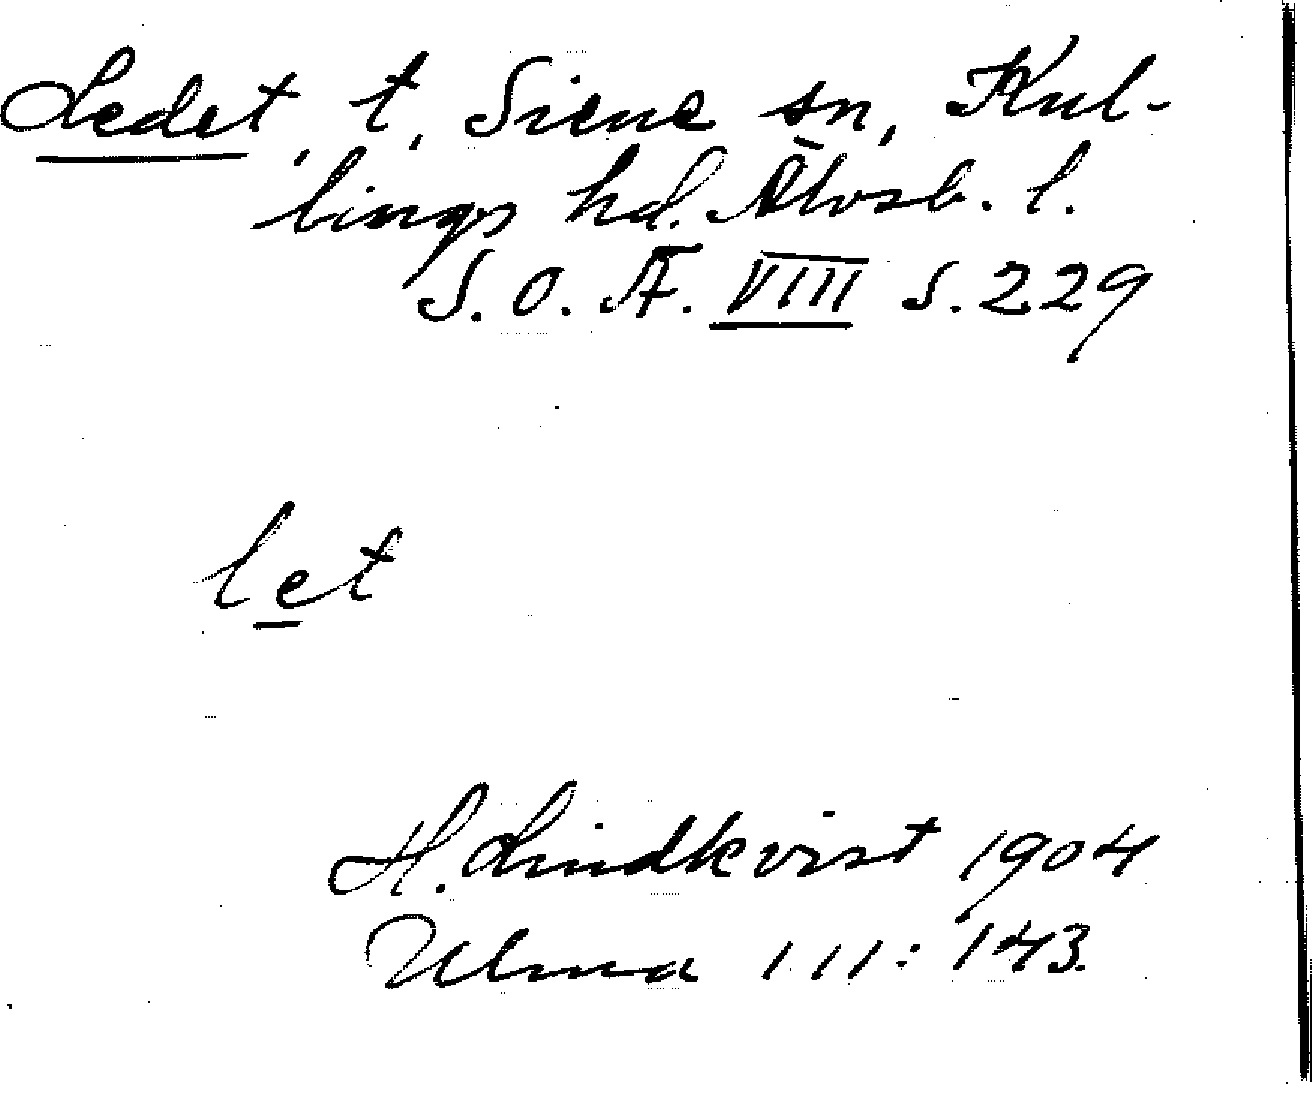 Ledet, t. Siene sn, Kul-
lings hd. Älvsb. l.
S. O. Ä. VIII s. 229
let
H. Lindkvist 1904
Ulma 111: 143.